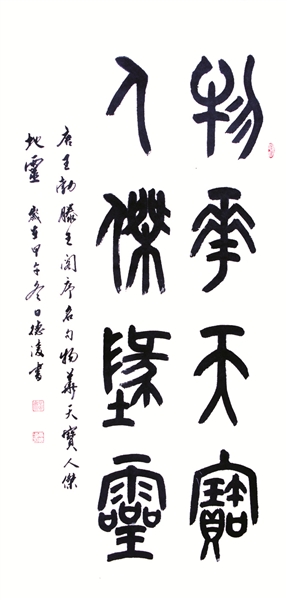 物華天寶
人傑地靈
唐王勃滕王阁序名句物華天寶人傑
地靈 歲在甲午冬日德凌書